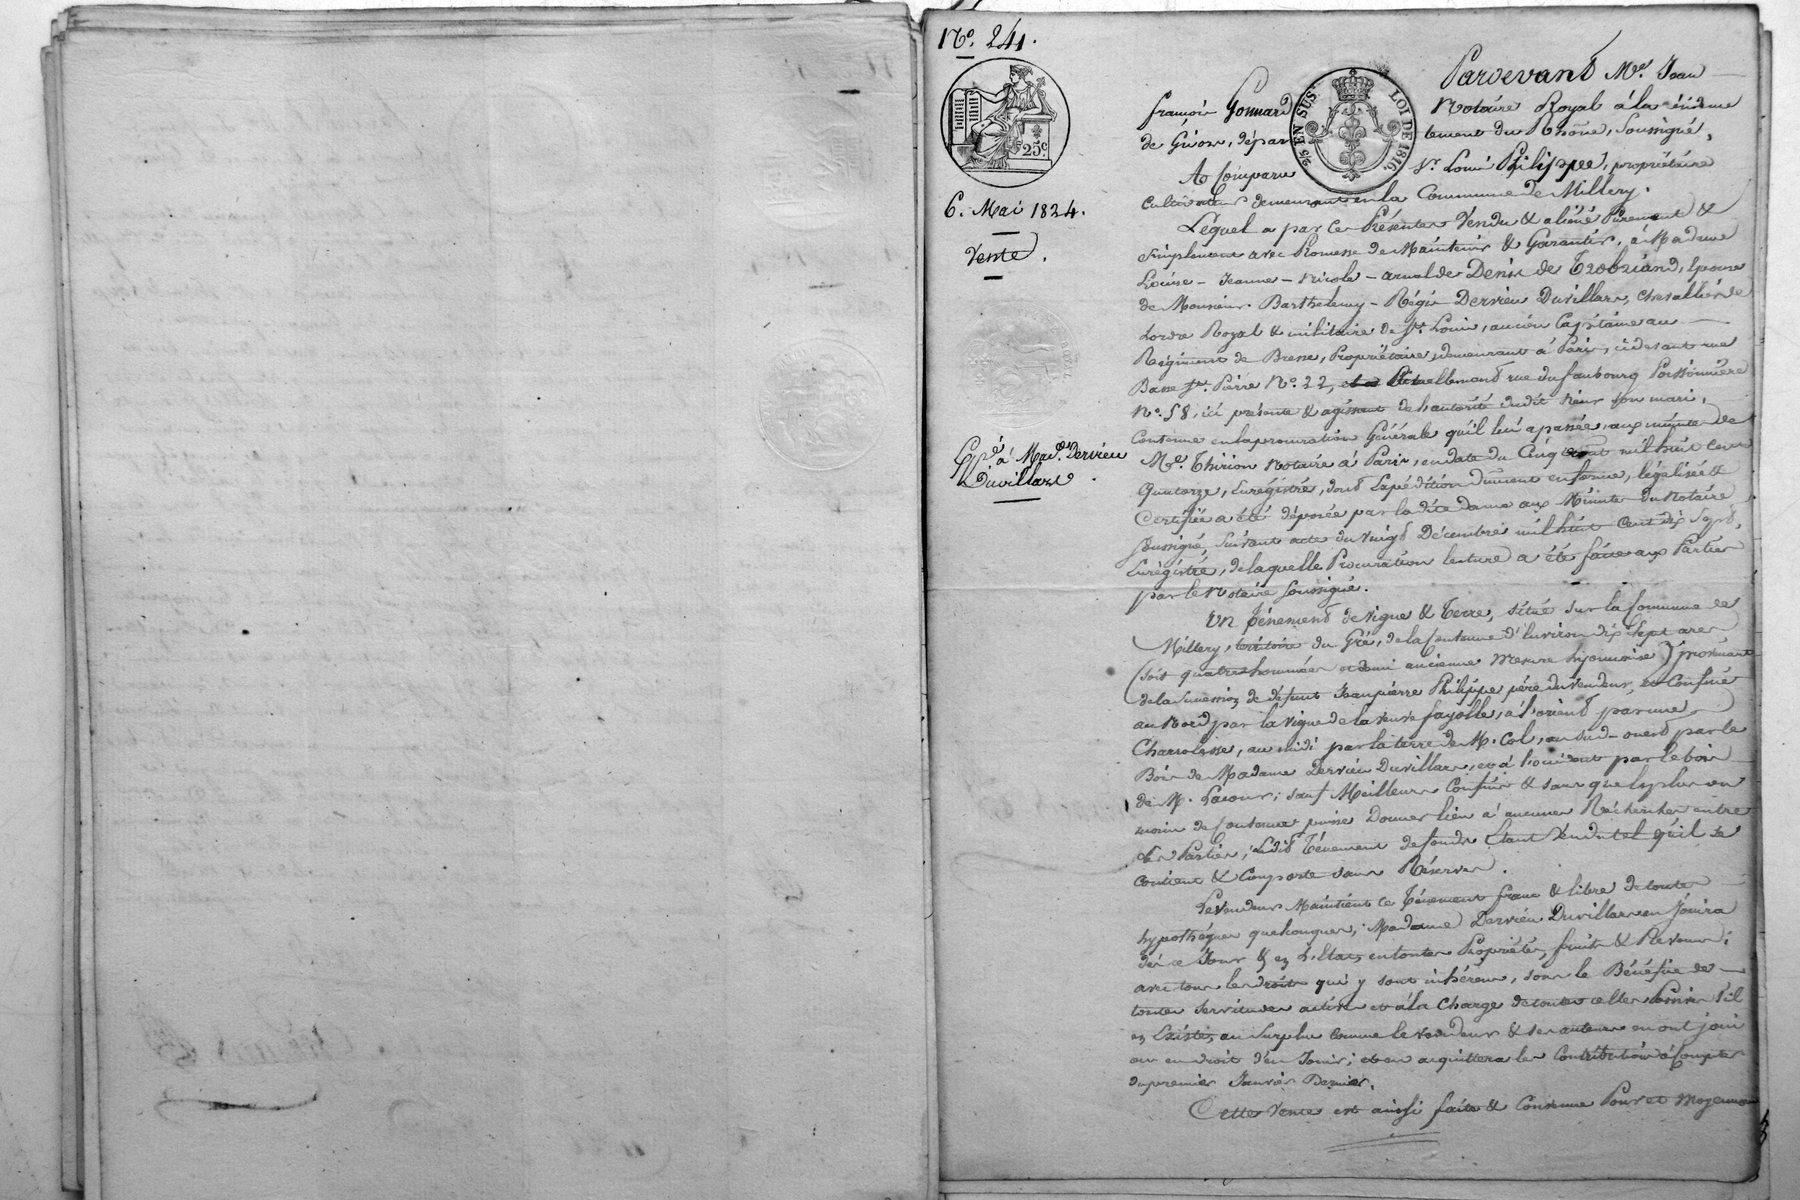 N.° 241.
25.c
2/5 EN SUS. LOI DE 1816.
6. Mai 1824.
Vente.
G.é à Mad.e Dervieu
Duvillars.
Pardevant M.e Jean
françois Gonnard Notaire Royal à la résidence
de Givors, département du Rhône, Soussigné,
A Comparu S.r Louis Philippe, propriétaire
Cultivateur demeurant en la Commune de Millery.
Lequel a par ces Présentes Vendu & aliéné Purement &
simplement avec Promesse de Maintenir & Garantir, à Madame
Louise-Jeanne-Nicole-arnalde Denis de Trobriand, Epouse
de Monsieur Barthelemy-Régis Dervieu Duvillars, chevallier de
Lordre Royal & militaire de S.t Louis, ancien Capitaine au
Régiment de Bresse, Propriétaire, demeurant à Paris, cidevant rue
Basse S.t Pierre N.° 22, Actuellement rue du faubourg Poissonnière
N.° 58, ici présente & agissant de l'autorité dudit sieur son mari,
Contenue en la procuration Générale qu'il lui a passée, aux minutes de
M.e Thirion Notaire à Paris, en date du Cinq mil huit Cent
Quatorze, Enregistrée, dont Lexpédition dûment en forme, légalisée &
Certifiée a été déposée par la dite dame aux Minutes du Notaire
Soussigné, Suivant acte du vingt Décembre mil huit Cent dix Sept,
Enregistré, de laquelle Procuration lecture a été faite aux Parties
par le Notaire Soussigné.
Un Ténement de vigne & Terre, situé sur la Commune de
Millery, territoire du Gré, de la contenue d'Environ dix Sept ares
(soit quatre hommées et demi ancienne Mesure Lyonnoise) provenant
de la Succession de défunt Jeanpierre Philippe père du vendeur, et Confiné
au Nord par la vigne de la veuve fayolle, à l'orient par une
Charrolesse, au midi par la terre de M. Col, au Sud-ouest par le
Bois de Madame Dervieu Duvillars, et à l'occident par le bois
de M. Lacour; sauf Meilleurs Confins & sans que le plus ou
moins de Contenue puisse Donner lieu à aucunes Récherches entre
les Parties; Ledit Ténement de fonds Etant Vendu tel qu'il se
Contient & Comporte sans Réserves.
Le Vendeur Maintient ce Ténement franc & libre de toutes
hypothéques quelconques; Madame Dervieu Duvillars en Jouira
dès ce Jour & en L'état, en toutes Propriétés, fruits & Revenus;
avec tous les droits qui y sont inhérens, sous le Bénéfice de
toutes servitudes actives et à la Charge de toutes celles Passives S'il
en Existe, au Surplus comme le vendeur & ses auteurs en ont joui
ou eu droit d'en Jouir; et en acquittera les Contributions à Compter
du premier Janvier Dernier.
Cette Vente est ainsi faite & Consentie Pour et moyennant